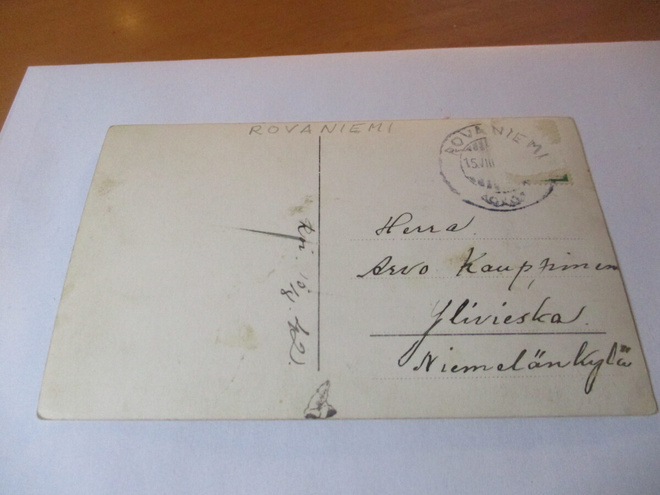 ROVANIEMI
ROVANIEMI
15.VIII
Herra.
Arvo Kauppinen
Ylivieska.
Niemelänkylä